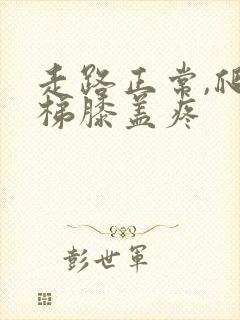 走路正常,爬
梯膝盖疼
彭世军